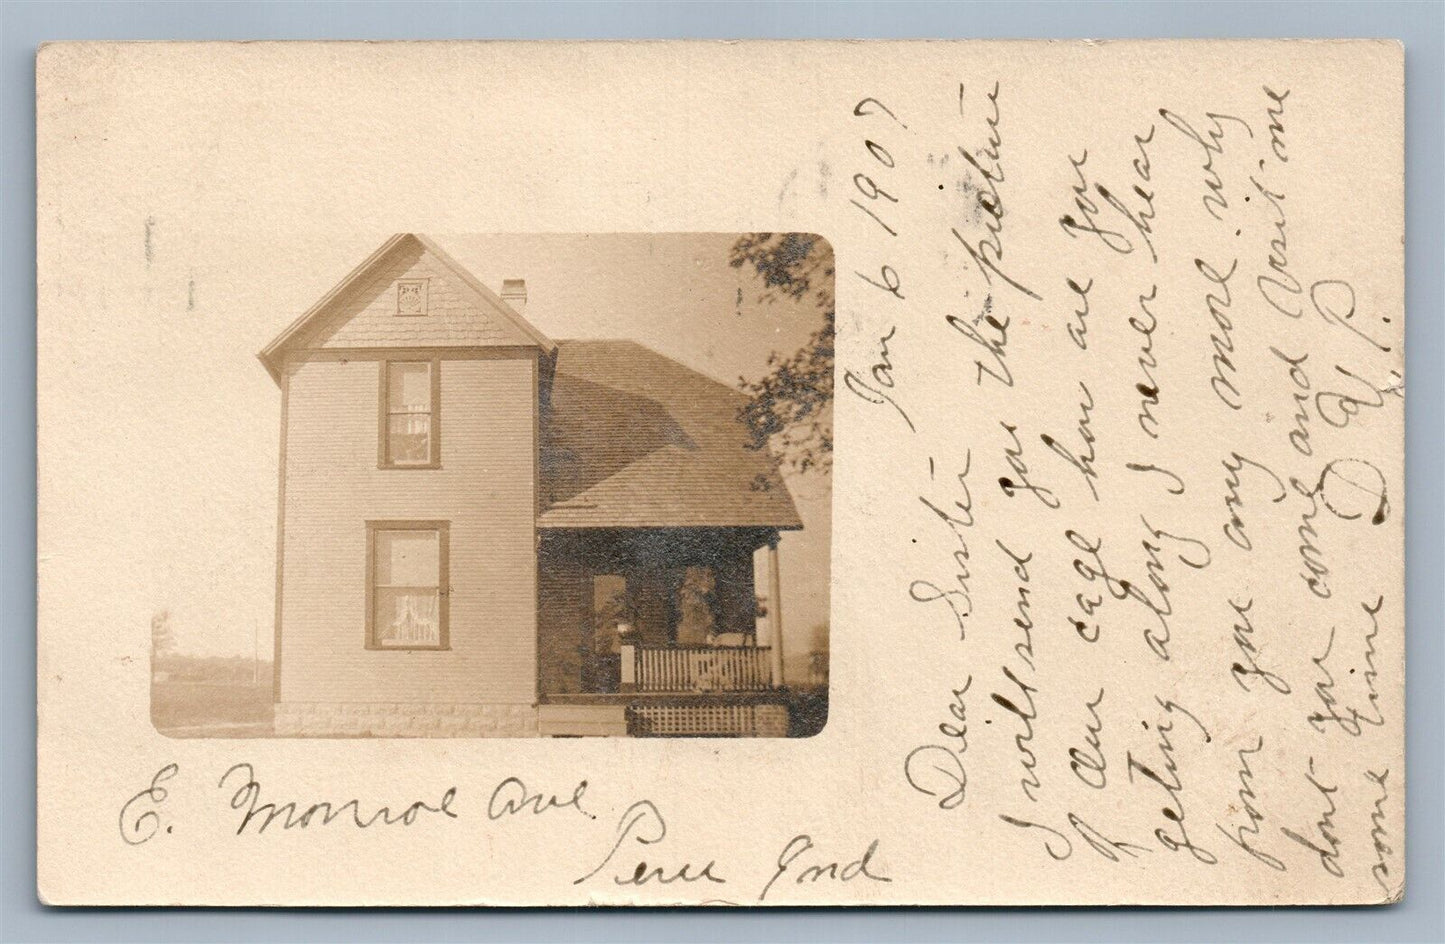 Jan 6 1907
Dear Sister
I will send you the picture
of our cage how are you
getting along I never hear
from you any more why
dont you come and visit me
some time D. P.
E. Monroe Ave
Peru Ind